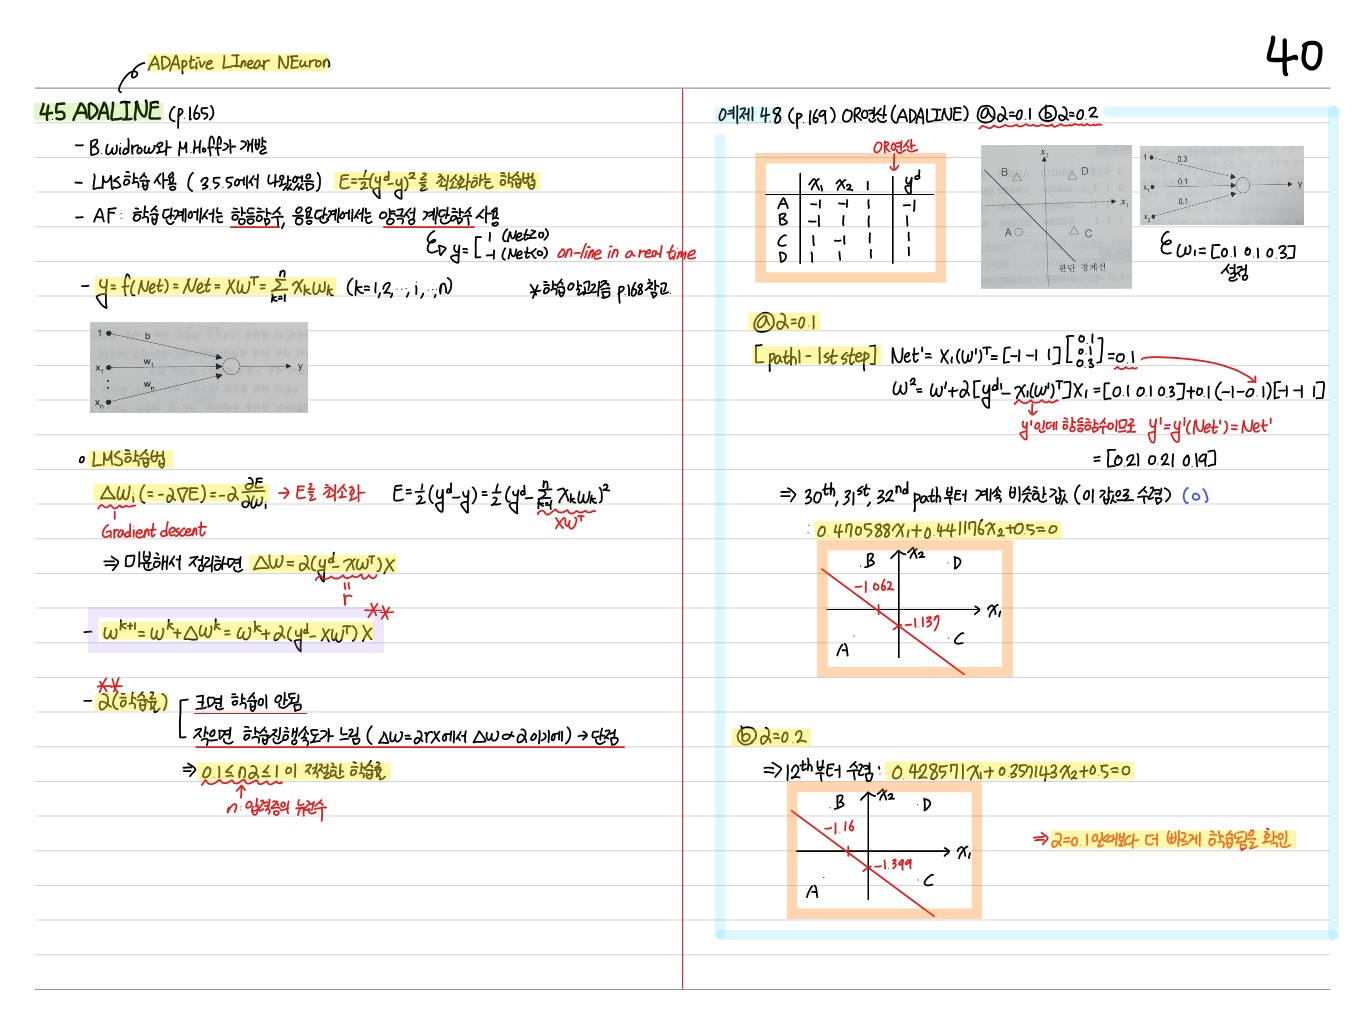 40
ADAptive LInear NEuron
4.5 ADALINE (p.165)
- B.widrow와 M.Hoff가 개발
- LMS학습 사용 ( 3.5.5에서 나왔었음) E=½(yᵈ-y)²를 최소화하는 학습법
- AF: 학습 단계에서는 항등함수, 응용단계에서는 양극성 계단함수 사용
y=[ 1 (Net≥0)
-1 (Net<0) on-line in a real time
- y=f(Net)=Net=XWᵀ=Σⁿₖ₌₁ xₖwₖ (k=1,2,…,i,…,n) *학습알고리즘 p.168 참고
1 b
x₁ w₁ y
⋮ wₙ
xₙ
o LMS학습법
△Wᵢ(=-α∇E)=-α ∂E/∂Wᵢ → E를 최소화 E=½(yᵈ-y)=½(yᵈ-Σⁿₖ₌₁ xₖwₖ)²
Gradient descent XWᵀ
⇒ 미분해서 정리하면 △W=α(yᵈ-XWᵀ)X
=
r
**
- Wᵏ⁺¹=Wᵏ+△Wᵏ=Wᵏ+α(yᵈ-XWᵀ)X
**
- α(학습률) 크면 학습이 안됨
작으면 학습진행속도가 느림 (△W=αrX에서 △W∝α이기에) → 단점
⇒ 0.1≤nα≤1이 적절한 학습률
n: 입력층의 뉴런수
예제 4.8 (p.169) OR연산 (ADALINE) ⓐα=0.1 ⓑα=0.2
OR연산
x₁ x₂ 1 yᵈ
A -1 -1 1 -1
B -1 1 1 1
C 1 -1 1 1
D 1 1 1 1
x₂
B D
x₁
A C
판단 경계선
1 0.3
x₁ 0.1 y
x₂ 0.1
W₁=[0.1 0.1 0.3]
설정
ⓐα=0.1
[path1-1st step] Net¹=X₁(W¹)ᵀ=[-1 -1 1][0.1 0.1 0.3]=0.1
W²=W¹+α[yᵈ¹-X₁(W¹)ᵀ]X₁=[0.1 0.1 0.3]+0.1(-1-0.1)[-1 -1 1]
y¹인데 항등함수이므로 y¹=y¹(Net¹)=Net¹
=[0.21 0.21 0.19]
⇒ 30th, 31st, 32nd path부터 계속 비슷한 값 (이 값으로 수렴) (0)
: 0.470588x₁+0.441176x₂+0.5=0
B x₂ D
-1.062
x₁
-1.137
A C
ⓑα=0.2
⇒ 12th부터 수렴: 0.428571x₁+0.357143x₂+0.5=0
B x₂ D
-1.16
x₁
-1.399
A C
⇒ α=0.1일때보다 더 빠르게 학습됨을 확인